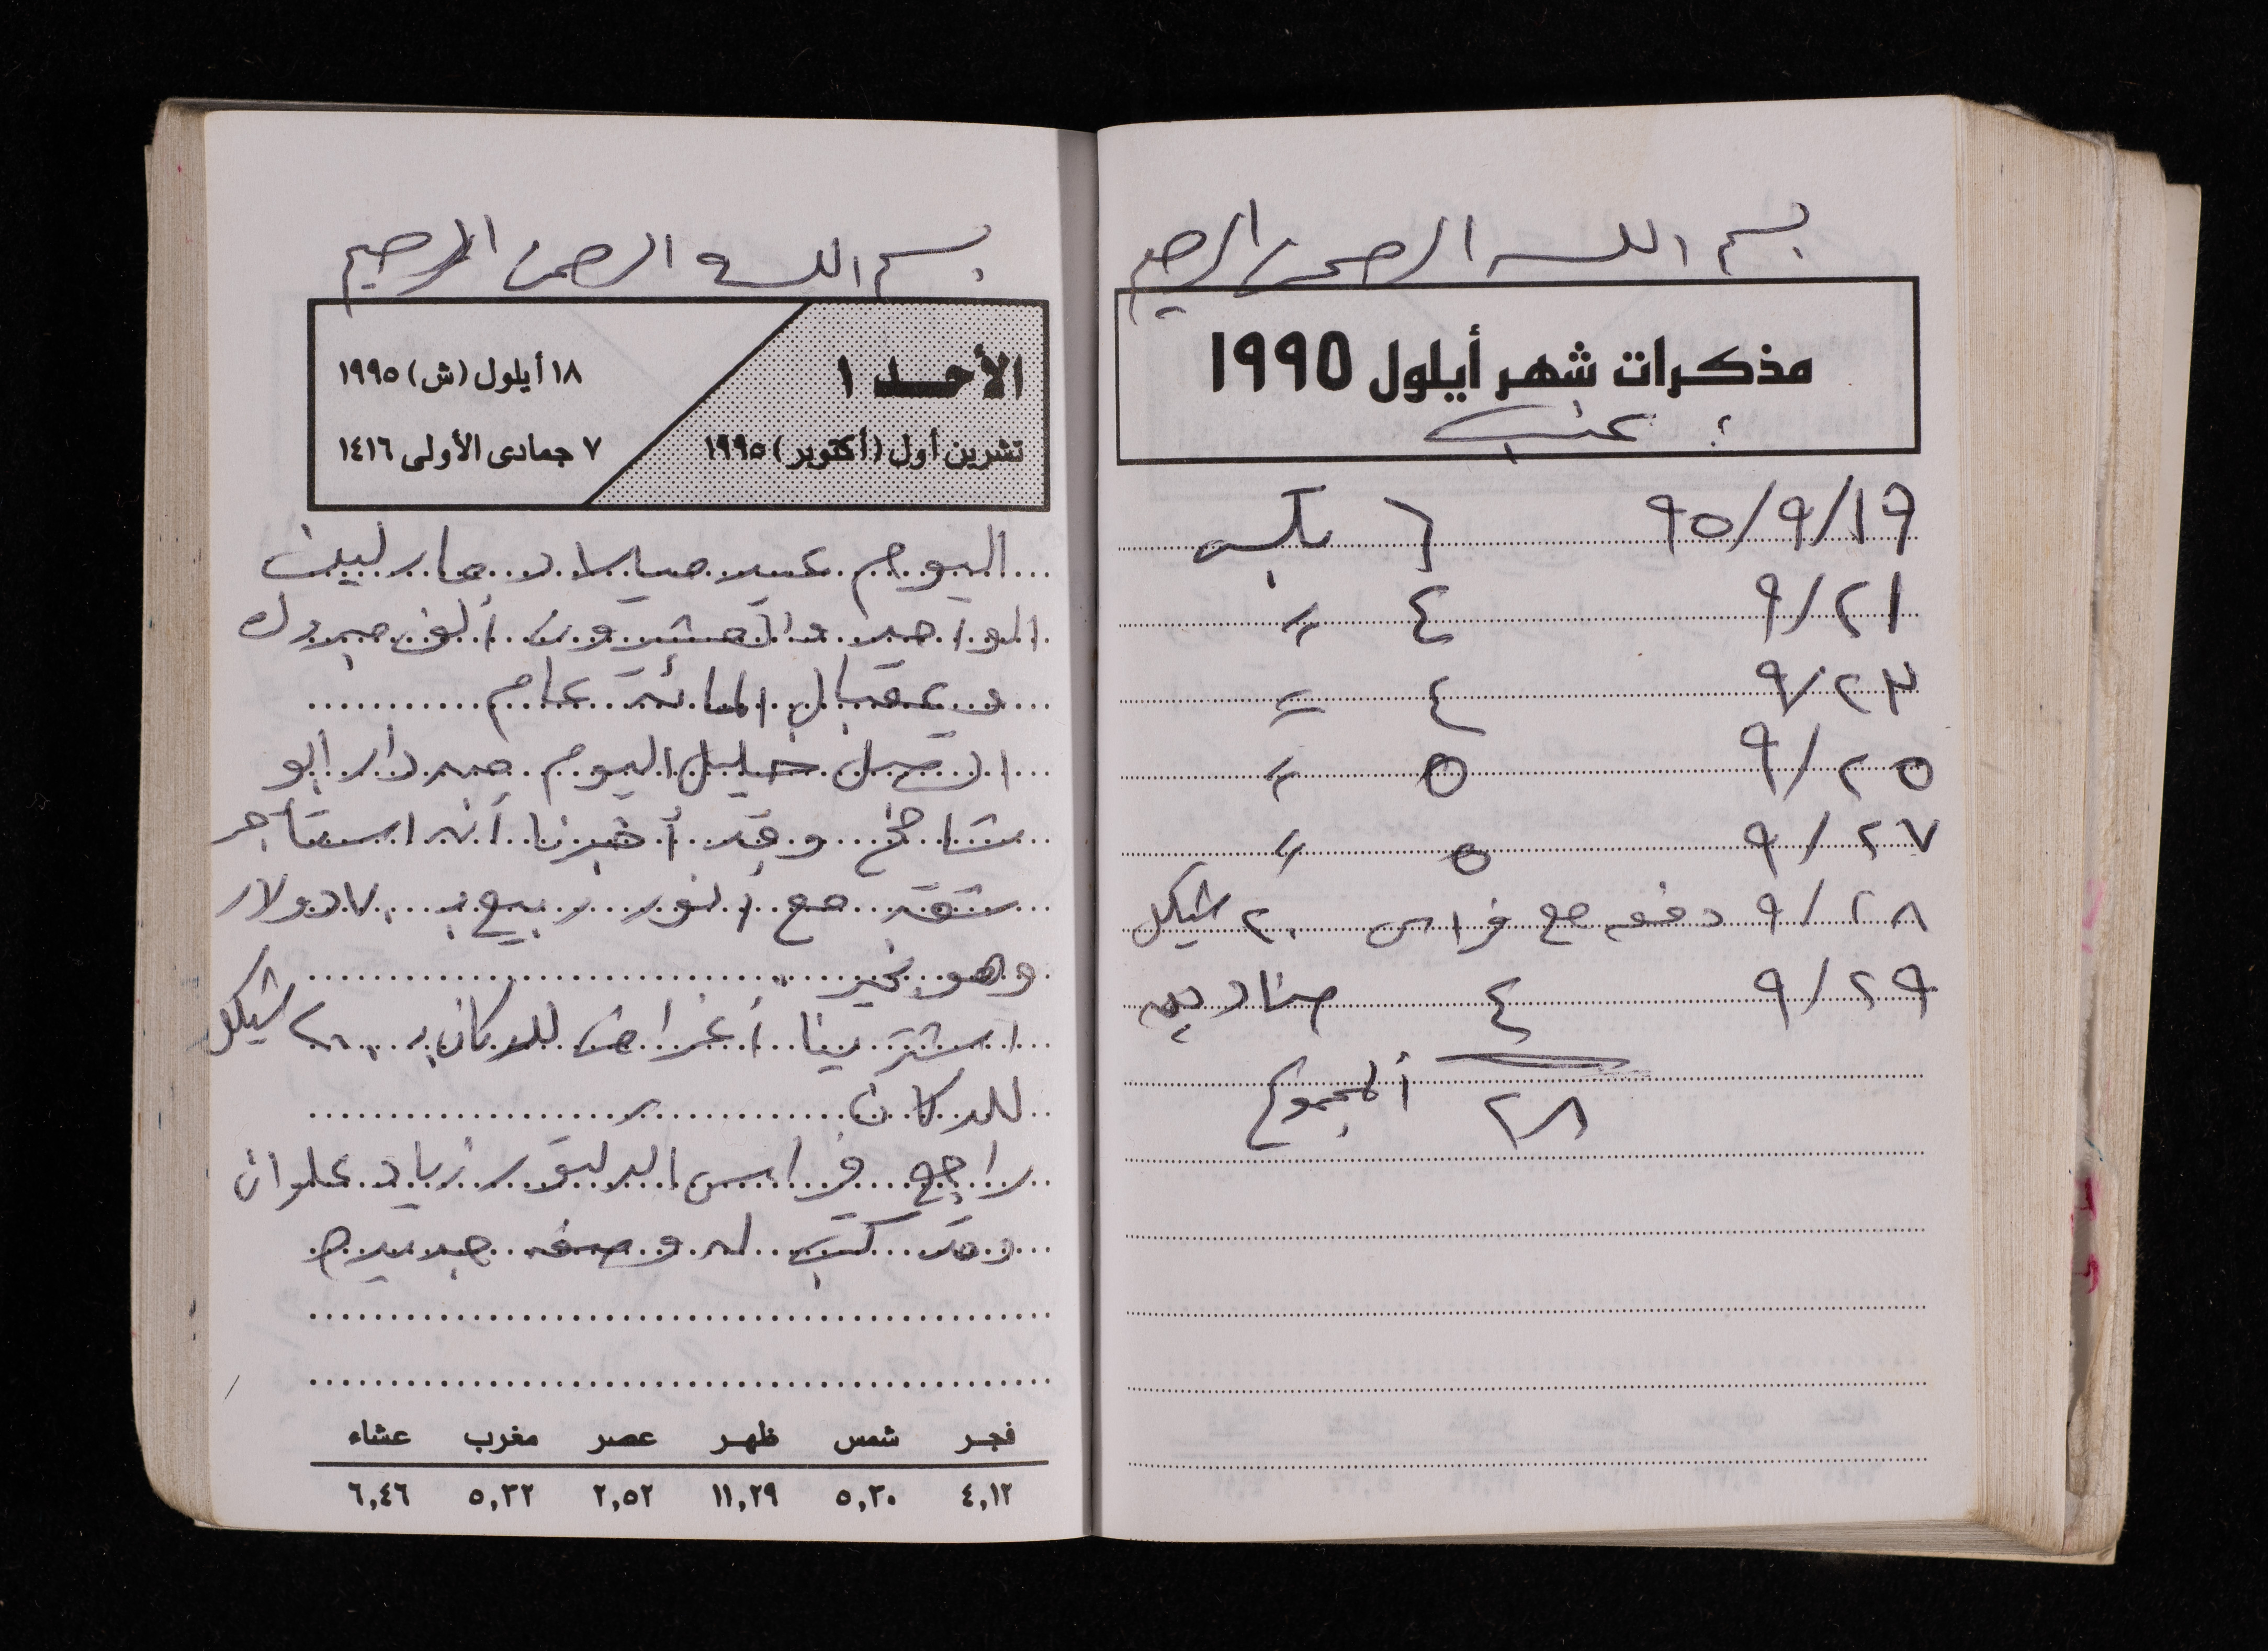 بسم الله الرحمن الرحيم
مذكرات شهر أيلول ١٩٩٥
عنب
٩٥/٩/١٩ ٦ بكسه
٩/٢١ ٤ =
٩/٢٣ ٤ =
٩/٢٥ ٥ =
٩/٢٧ ٥ =
٩/٢٨ دفعه مع فراس ٢٠ شيكل
٩/٢٩ ٤ صناديق
٢٨ ألمجموع
بسم الله الرحمن الرحيم
الأحد ١
تشرين أول (أكتوبر) ١٩٩٥
١٨ أيلول (ش) ١٩٩٥
٧ جمادى الأولى ١٤١٦
اليوم عيد ميلاد مارلين
الواحد والعشرون ألف مبروك
وعقبال المائة عام
اتصل خليل اليوم من دار أبو
شامخ وقد أخبرنا أنه استأجر
شقه مع أنور ربيع ب ٧٠ دولار
وهو بخير
اشترينا أغراض للدكان ب ٢٠٠ شيكل
للدكان
راجع فراس الدكتور زياد علوان
وقد كتب له وصفه جديده
فجر شمس ظهر عصر مغرب عشاء
٤,١٢ ٥,٣٠ ١١,٢٩ ٢,٥٢ ٥,٣٢ ٦,٤٦